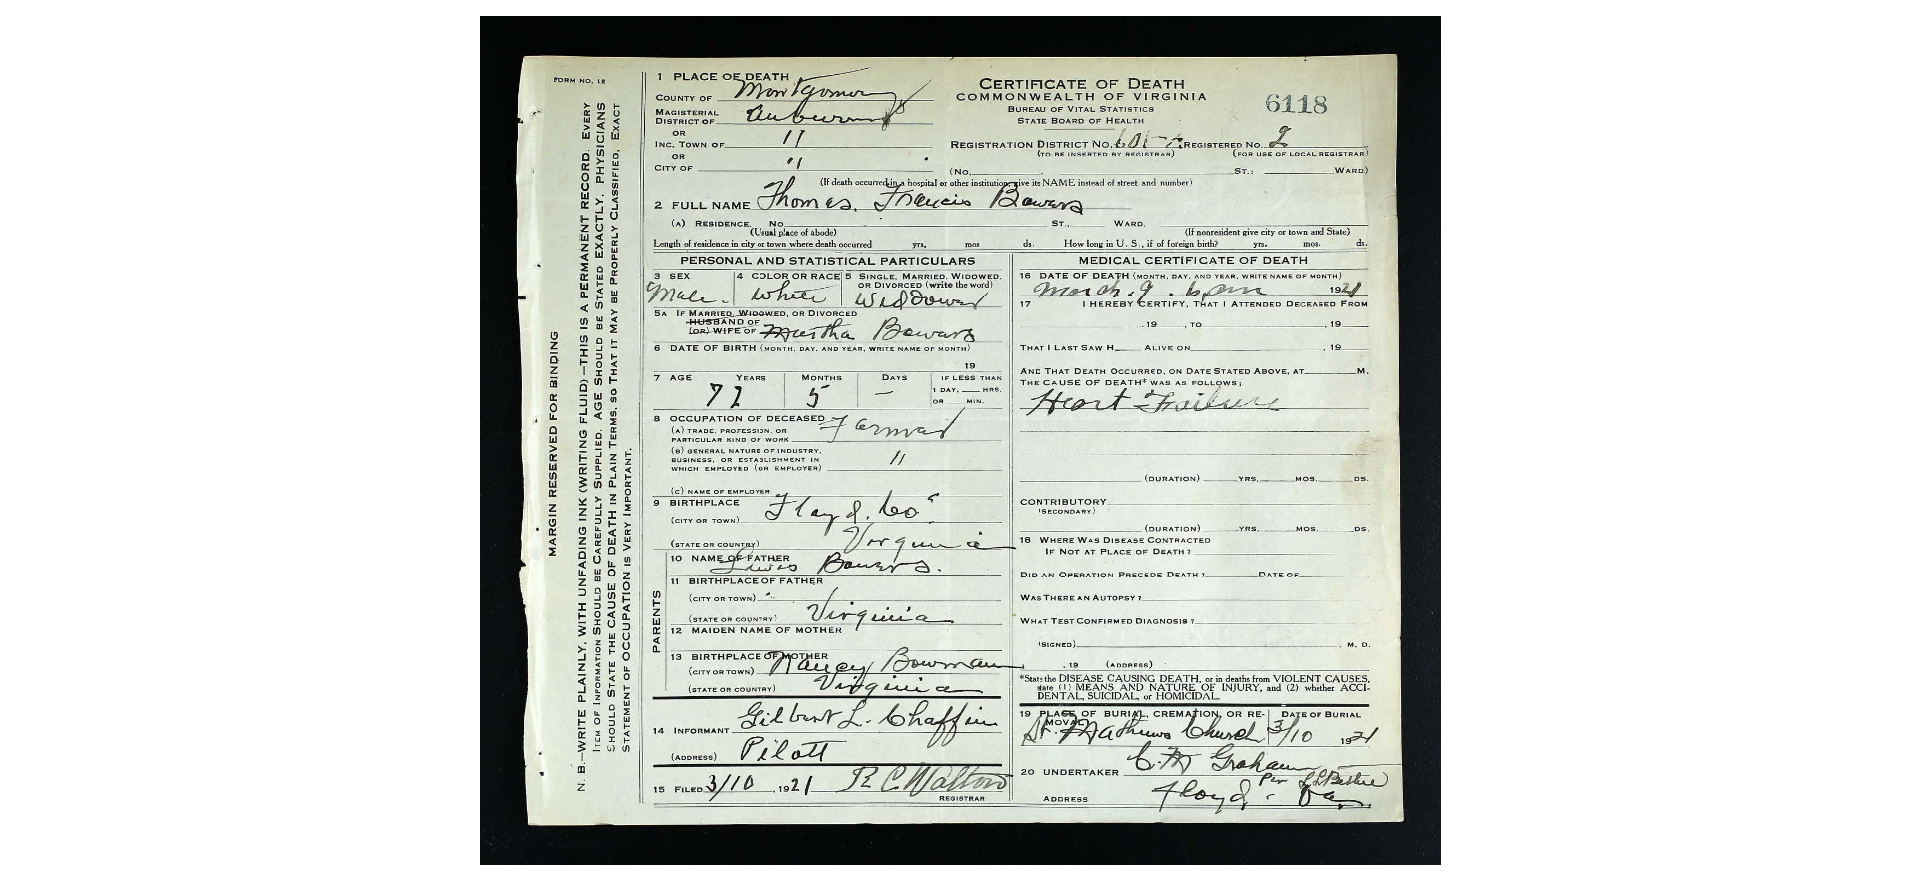 FORM NO. 12
MARGIN RESERVED FOR BINDING
N. B.—WRITE PLAINLY, WITH UNFADING INK (WRITING FLUID)—THIS IS A PERMANENT RECORD. EVERY
ITEM OF INFORMATION SHOULD BE CAREFULLY SUPPLIED. AGE SHOULD BE STATED EXACTLY. PHYSICIANS
SHOULD STATE THE CAUSE OF DEATH IN PLAIN TERMS, SO THAT IT MAY BE PROPERLY CLASSIFIED. EXACT
STATEMENT OF OCCUPATION IS VERY IMPORTANT.
1 PLACE OF DEATH
COUNTY OF Montgomery
MAGISTERIAL
DISTRICT OF Auburn
OR
INC. TOWN OF "
OR
CITY OF "
CERTIFICATE OF DEATH
COMMONWEALTH OF VIRGINIA
BUREAU OF VITAL STATISTICS
STATE BOARD OF HEALTH
6118
REGISTRATION DISTRICT No. REGISTERED No. 2
(TO BE INSERTED BY REGISTRAR) (FOR USE OF LOCAL REGISTRAR)
(No. ST.; WARD)
(If death occurred in a hospital or other institution, give its NAME instead of street and number)
2 FULL NAME Thomas. Francis Bowers
(A) RESIDENCE. No. ST., WARD.
(Usual place of abode) (If nonresident give city or town and State)
Length of residence in city or town where death occurred yrs. mos ds. How long in U. S., if of foreign birth? yrs. mos. ds.
PERSONAL AND STATISTICAL PARTICULARS
3 SEX 4 COLOR OR RACE 5 SINGLE, MARRIED, WIDOWED,
OR DIVORCED (write the word)
Male. White Widdower
5A IF MARRIED, WIDOWED, OR DIVORCED
HUSBAND OF
(OR) WIFE OF Martha Bowers
6 DATE OF BIRTH (MONTH, DAY, AND YEAR, WRITE NAME OF MONTH)
19
7 AGE YEARS MONTHS DAYS IF LESS THAN
1 DAY, HRS.
OR MIN.
72 5 —
8 OCCUPATION OF DECEASED
(A) TRADE, PROFESSION, OR
PARTICULAR KIND OF WORK Farmer
(B) GENERAL NATURE OF INDUSTRY,
BUSINESS, OR ESTABLISHMENT IN
WHICH EMPLOYED (OR EMPLOYER) "
(C) NAME OF EMPLOYER
9 BIRTHPLACE
(CITY OR TOWN) Floyd. Co.
(STATE OR COUNTRY) Virginia
PARENTS
10 NAME OF FATHER
Lewis Bowers.
11 BIRTHPLACE OF FATHER
(CITY OR TOWN)
(STATE OR COUNTRY) Virginia
12 MAIDEN NAME OF MOTHER
13 BIRTHPLACE OF MOTHER
(CITY OR TOWN) Nancy Bowman
(STATE OR COUNTRY) Virginia
14 INFORMANT Gilbert L. Chaffin
(ADDRESS) Pilott
15 FILED 3/10, 1921 R C Walton
REGISTRAR
MEDICAL CERTIFICATE OF DEATH
16 DATE OF DEATH (MONTH, DAY, AND YEAR, WRITE NAME OF MONTH)
March. 9. 1921
17 I HEREBY CERTIFY, THAT I ATTENDED DECEASED FROM
, 19 , TO , 19
THAT I LAST SAW H ALIVE ON , 19
AND THAT DEATH OCCURRED, ON DATE STATED ABOVE, AT M.
THE CAUSE OF DEATH* WAS AS FOLLOWS:
Heart Failure
(DURATION) YRS. MOS. DS.
CONTRIBUTORY
(SECONDARY)
(DURATION) YRS. MOS. DS.
18 WHERE WAS DISEASE CONTRACTED
IF NOT AT PLACE OF DEATH?
DID AN OPERATION PRECEDE DEATH? DATE OF
WAS THERE AN AUTOPSY?
WHAT TEST CONFIRMED DIAGNOSIS?
(SIGNED) M. D.
, 19 (ADDRESS)
*State the DISEASE CAUSING DEATH, or in deaths from VIOLENT CAUSES,
state (1) MEANS AND NATURE OF INJURY, and (2) whether ACCI-
DENTAL, SUICIDAL, or HOMICIDAL.
19 PLACE OF BURIAL, CREMATION, OR RE- DATE OF BURIAL
MOVAL
St. Mathews Church 3/10 1921
20 UNDERTAKER C. M Graham
Per
ADDRESS Floyd. Va